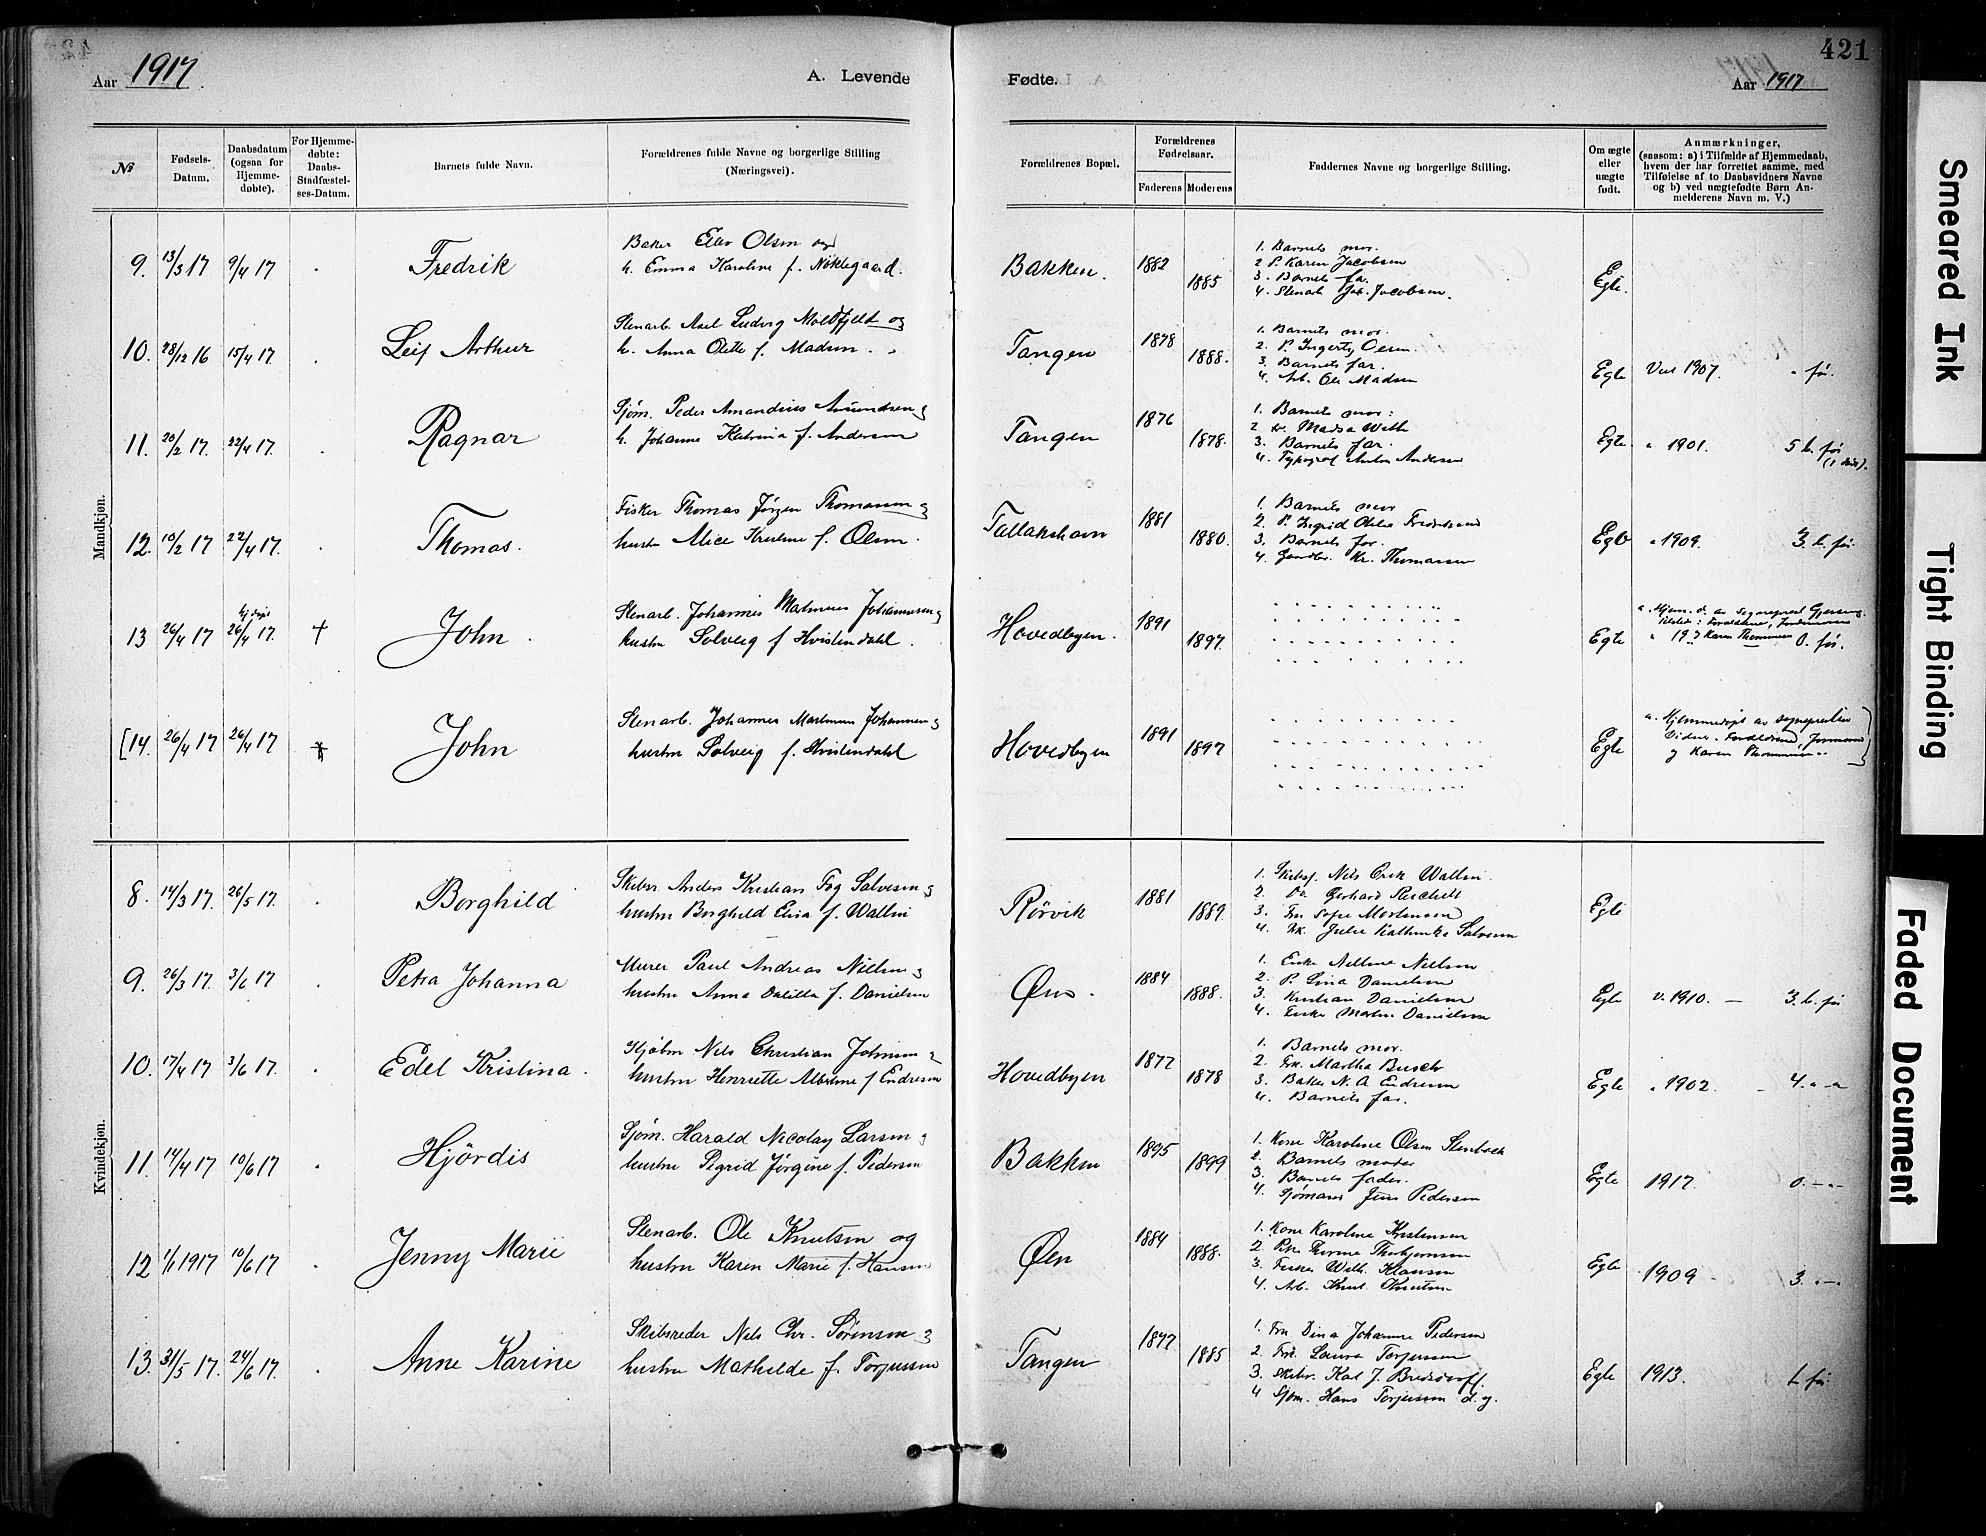 Aar 1917.
A. Levende
Fødte.
Aar 1917
421
№
Fødsels-Datum.
Daabsdatum (ogsaa for Hjemme-døbte).
For Hjemme-døbte: Daabs-Stadfæstel-ses-Datum.
Barnets fulde Navn.
Forældrenes fulde Navne og borgerlige Stilling (Næringsvei).
Forældrenes Bopæl.
Forældrenes Fødselsaar.
Faderens Moderens
Faddernes Navne og borgerlige Stilling.
Om ægte eller uægte født.
Anmærkninger, (saasom: a) i Tilfælde af Hjemmedaab, hvem der har forrettet samme, med Tilføielse af to Daabsvidners Navne og b) ved uægtefødte Børn An-melderens Navn m. V.)
Mandkjøn.
9. 13/3 17 9/4 17 . Fredrik
Baker Olsen og
h. Emma Karoline f.
Bakken. 1882 1885
1. Barnets mor.
2 P. Karen Jacobsen
3. Barnets far.
4. Stenarb. Joh. Jacobsen.
Egte.
10. 28/12 16 15/4 17 . Leif Arthur
Stenarb. Axel Ludvig Moldfjeld og
h. Anna f. Madsen.
Tangen 1878 1888.
1. Barnets mor.
2. P. Olsen.
3. Barnets far.
4. Arb. Ole Madsen
Egte Viet 1907. før.
11. 20/2 17. 22/4 17. . Ragnar
Sjøm. Peder Amandius Amundsen og
h. Johanne Katrina f. Andersen
Tangen 1876 1878.
1. Barnets mor:
2
3. Barnets far.
4. Typograf Anton Andersen
Egte " 1901. 5 b. før
12. 10/2 17 22/4 17. . Thomas.
Fisker Thomas Jörgen Thomassen og
hustru Alice Kristine f. Olsen.
Tallakshavn 1881 1880.
1. Barnets mor
2. P. Ingrid
3. Barnets far.
4. Kr. Thomassen
Egte " 1909. 3 b. før.
13 26/4 17 26/4 17. † John.
Stenarb. Johannes Martinius Johannesen og
hustru Solveig f Hvistendahl.
Hovedbyen. 1891 1897.
Egte
Karen Thommesen 0. før.
[14. 26/4 17 26/4 17 † John
Stenarb. Johannes Martinius Johannesen og
hustru Solveig f. Hvistendahl
Hovedbyen 1891 1897
Egte
a. Hjemmedöpt av sogneprest
og Karen Thommesen.]
Kvindekjøn.
8. 14/3 17. 26/5 17. . Borghild
Skibsr. Anders Kristian Fog Salvesen og
hustru Borghild Elisa f. Wallin
Rörvik 1881 1889.
1. Nils Erik Wallin.
2. Gerhard Reichelt
3. Fru Mortensen
4. Julie Kathinka Salvesen
Egte
9. 26/3 17. 3/6 17 . Petra Johanna
Murer Paul Andreas Nielsen og
hustru Anna Dalilla f. Danielsen
Øen. 1884 1888.
1. Enke Nielsen
2. P. Lina Danielsen
3. Kristian Danielsen
4. Martin Danielsen
Egte v. 1910. — 3. b. før
10. 17/4 17 3/6 17. . Edel Kristina.
Kjöbm Nils Christian Johnsen og
hustru Henriette Albertine f Endresen
Hovedbyen 1877 1878
1. Barnets mor.
2. Frk. Martha Busch
3. Baker N. A. Endresen
4. Barnets far.
Egte " 1902. 4. " "
11. 14/4 17 10/6 17 . Hjördis
Sjöm. Harald Nicolay Larsen og
hustru Sigrid Jörgine f. Pedersen
Bakken 1895 1899
1. Kone Karoline Olsen Stenbeck
2. Barnets moder
3. Barnets fader.
4. Sjömann Jens Pedersen
Egte 1917. 0. — " —
12 1/1 1917 10/6 17 . Jenny Marie
Stenarb. Ole Knutsen og
hustru Karen Marie f. Hansen
Øen 1884 1888.
1. Kone Karoline Kristensen
2. Thorbjørnsen
3. Fisker Wilh. Klausen
4. Arb. Knut Knutsen
Egte 1909 - 3. — " —
13. 31/5 17. 24/6 17. . Anne Karine
Skibsreder Nils Chr. Sörensen og
hustru Mathilde f. Torjussen
Tangen 1877 1885
1. Fru Dina Johanne Pedersen
2. Frk. Laura Torjussen
3. Skibsr. Karl J. Bredsdorff.
4 Sjøm. Hans Torjussen d. y.
Egte 1913. 1. før.
Smeared Ink
Tight Binding
Faded Document